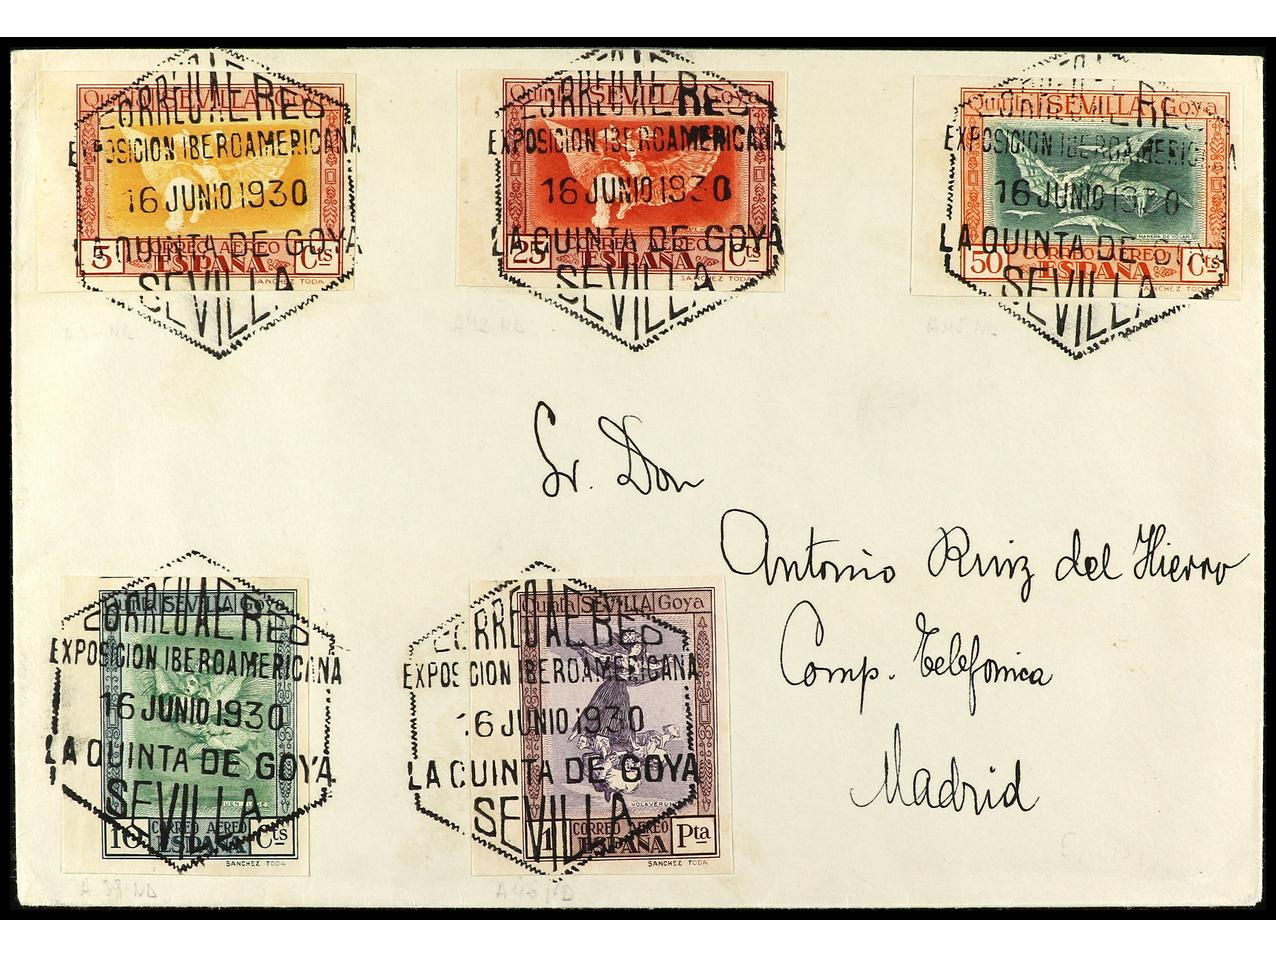 CORREO AEREO
EXPOSICION IBEROAMERICANA
16 JUNIO 1930
LA QUINTA DE GOYA
SEVILLA
Quinta SEVILLA Goya
5 CORREO AEREO Cts
ESPAÑA
SANCHEZ TODA
CORREO AEREO
EXPOSICION IBEROAMERICANA
16 JUNIO 1930
LA QUINTA DE GOYA
SEVILLA
Quinta SEVILLA Goya
25 CORREO AEREO Cts
ESPAÑA
SANCHEZ TODA
A42 ND
CORREO AEREO
EXPOSICION IBEROAMERICANA
16 JUNIO 1930
LA QUINTA DE GOYA
SEVILLA
Quinta SEVILLA Goya
MANERA DE VOLAR
50 CORREO AEREO Cts
ESPAÑA
SANCHEZ TODA
Sr. Don
Antonio Ruiz del Hierro
Comp. Telefonica
Madrid
CORREO AEREO
EXPOSICION IBEROAMERICANA
16 JUNIO 1930
LA QUINTA DE GOYA
SEVILLA
Quinta SEVILLA Goya
10 CORREO AEREO Cts
ESPAÑA
SANCHEZ TODA
A 39 ND
CORREO AEREO
EXPOSICION IBEROAMERICANA
16 JUNIO 1930
LA QUINTA DE GOYA
SEVILLA
Quinta SEVILLA Goya
VOLAVERUNT
1 CORREO AEREO Pta
ESPAÑA
SANCHEZ TODA